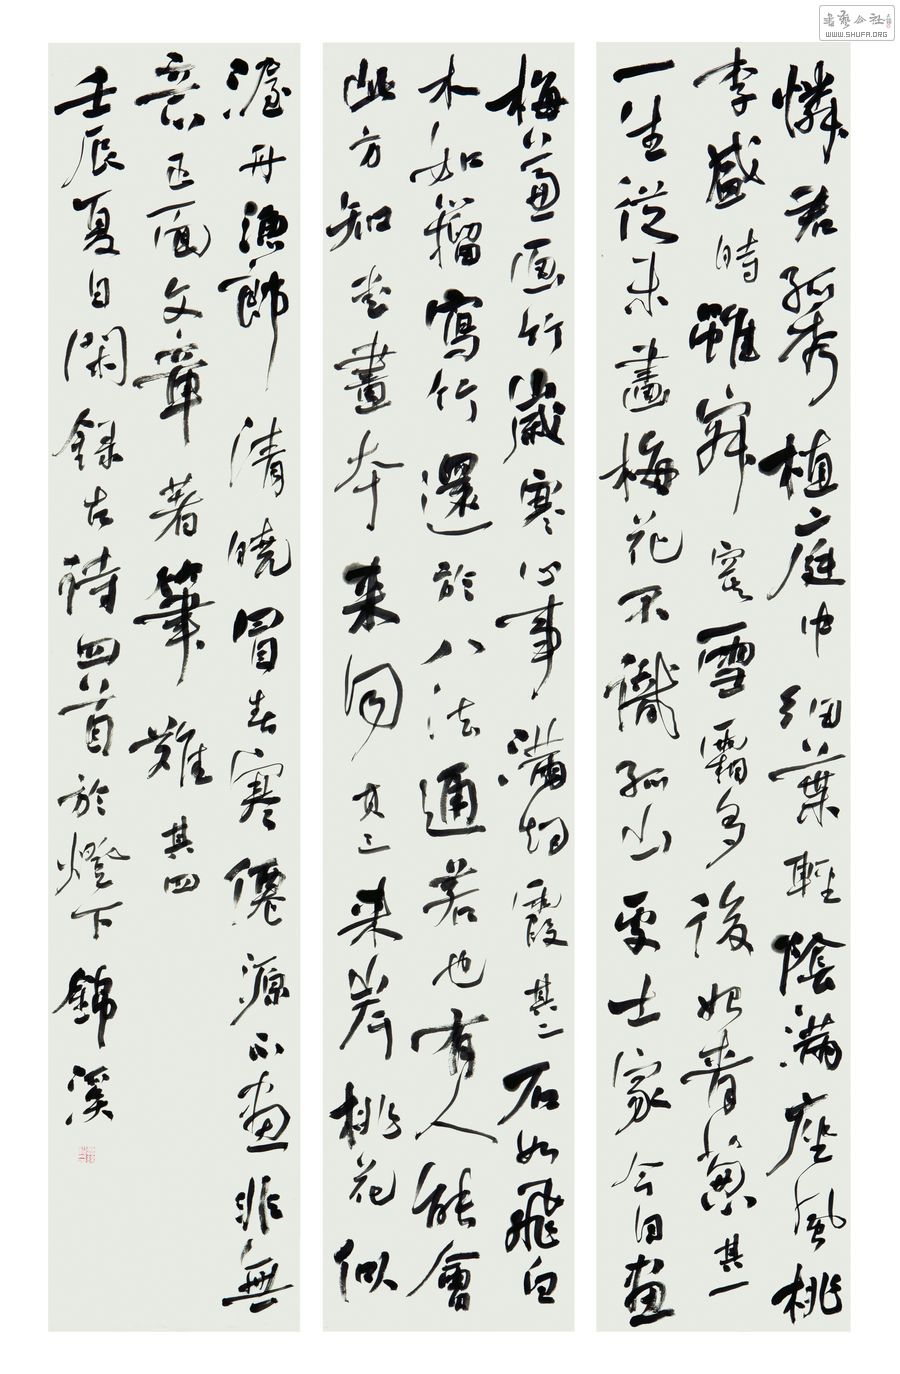 憐君孤秀植庭中細葉輕陰滿座風桃
李盛時雖寂寞雪霜多後始青蔥其一
一生從未畫梅花不識孤山處士家今日畫
梅兼畫竹歲寒心事滿烟霞其二石如飛白
木如籀寫竹還於八法通若也有人能會
此方知書畫本來同其三夾岸桃花似
渥丹漁郎清曉冒春寒僊源不畫非無
意正面文章著筆難其四
壬辰夏日閑錄古詩四首於燈下錦溪
WWW.SHUFA.ORG